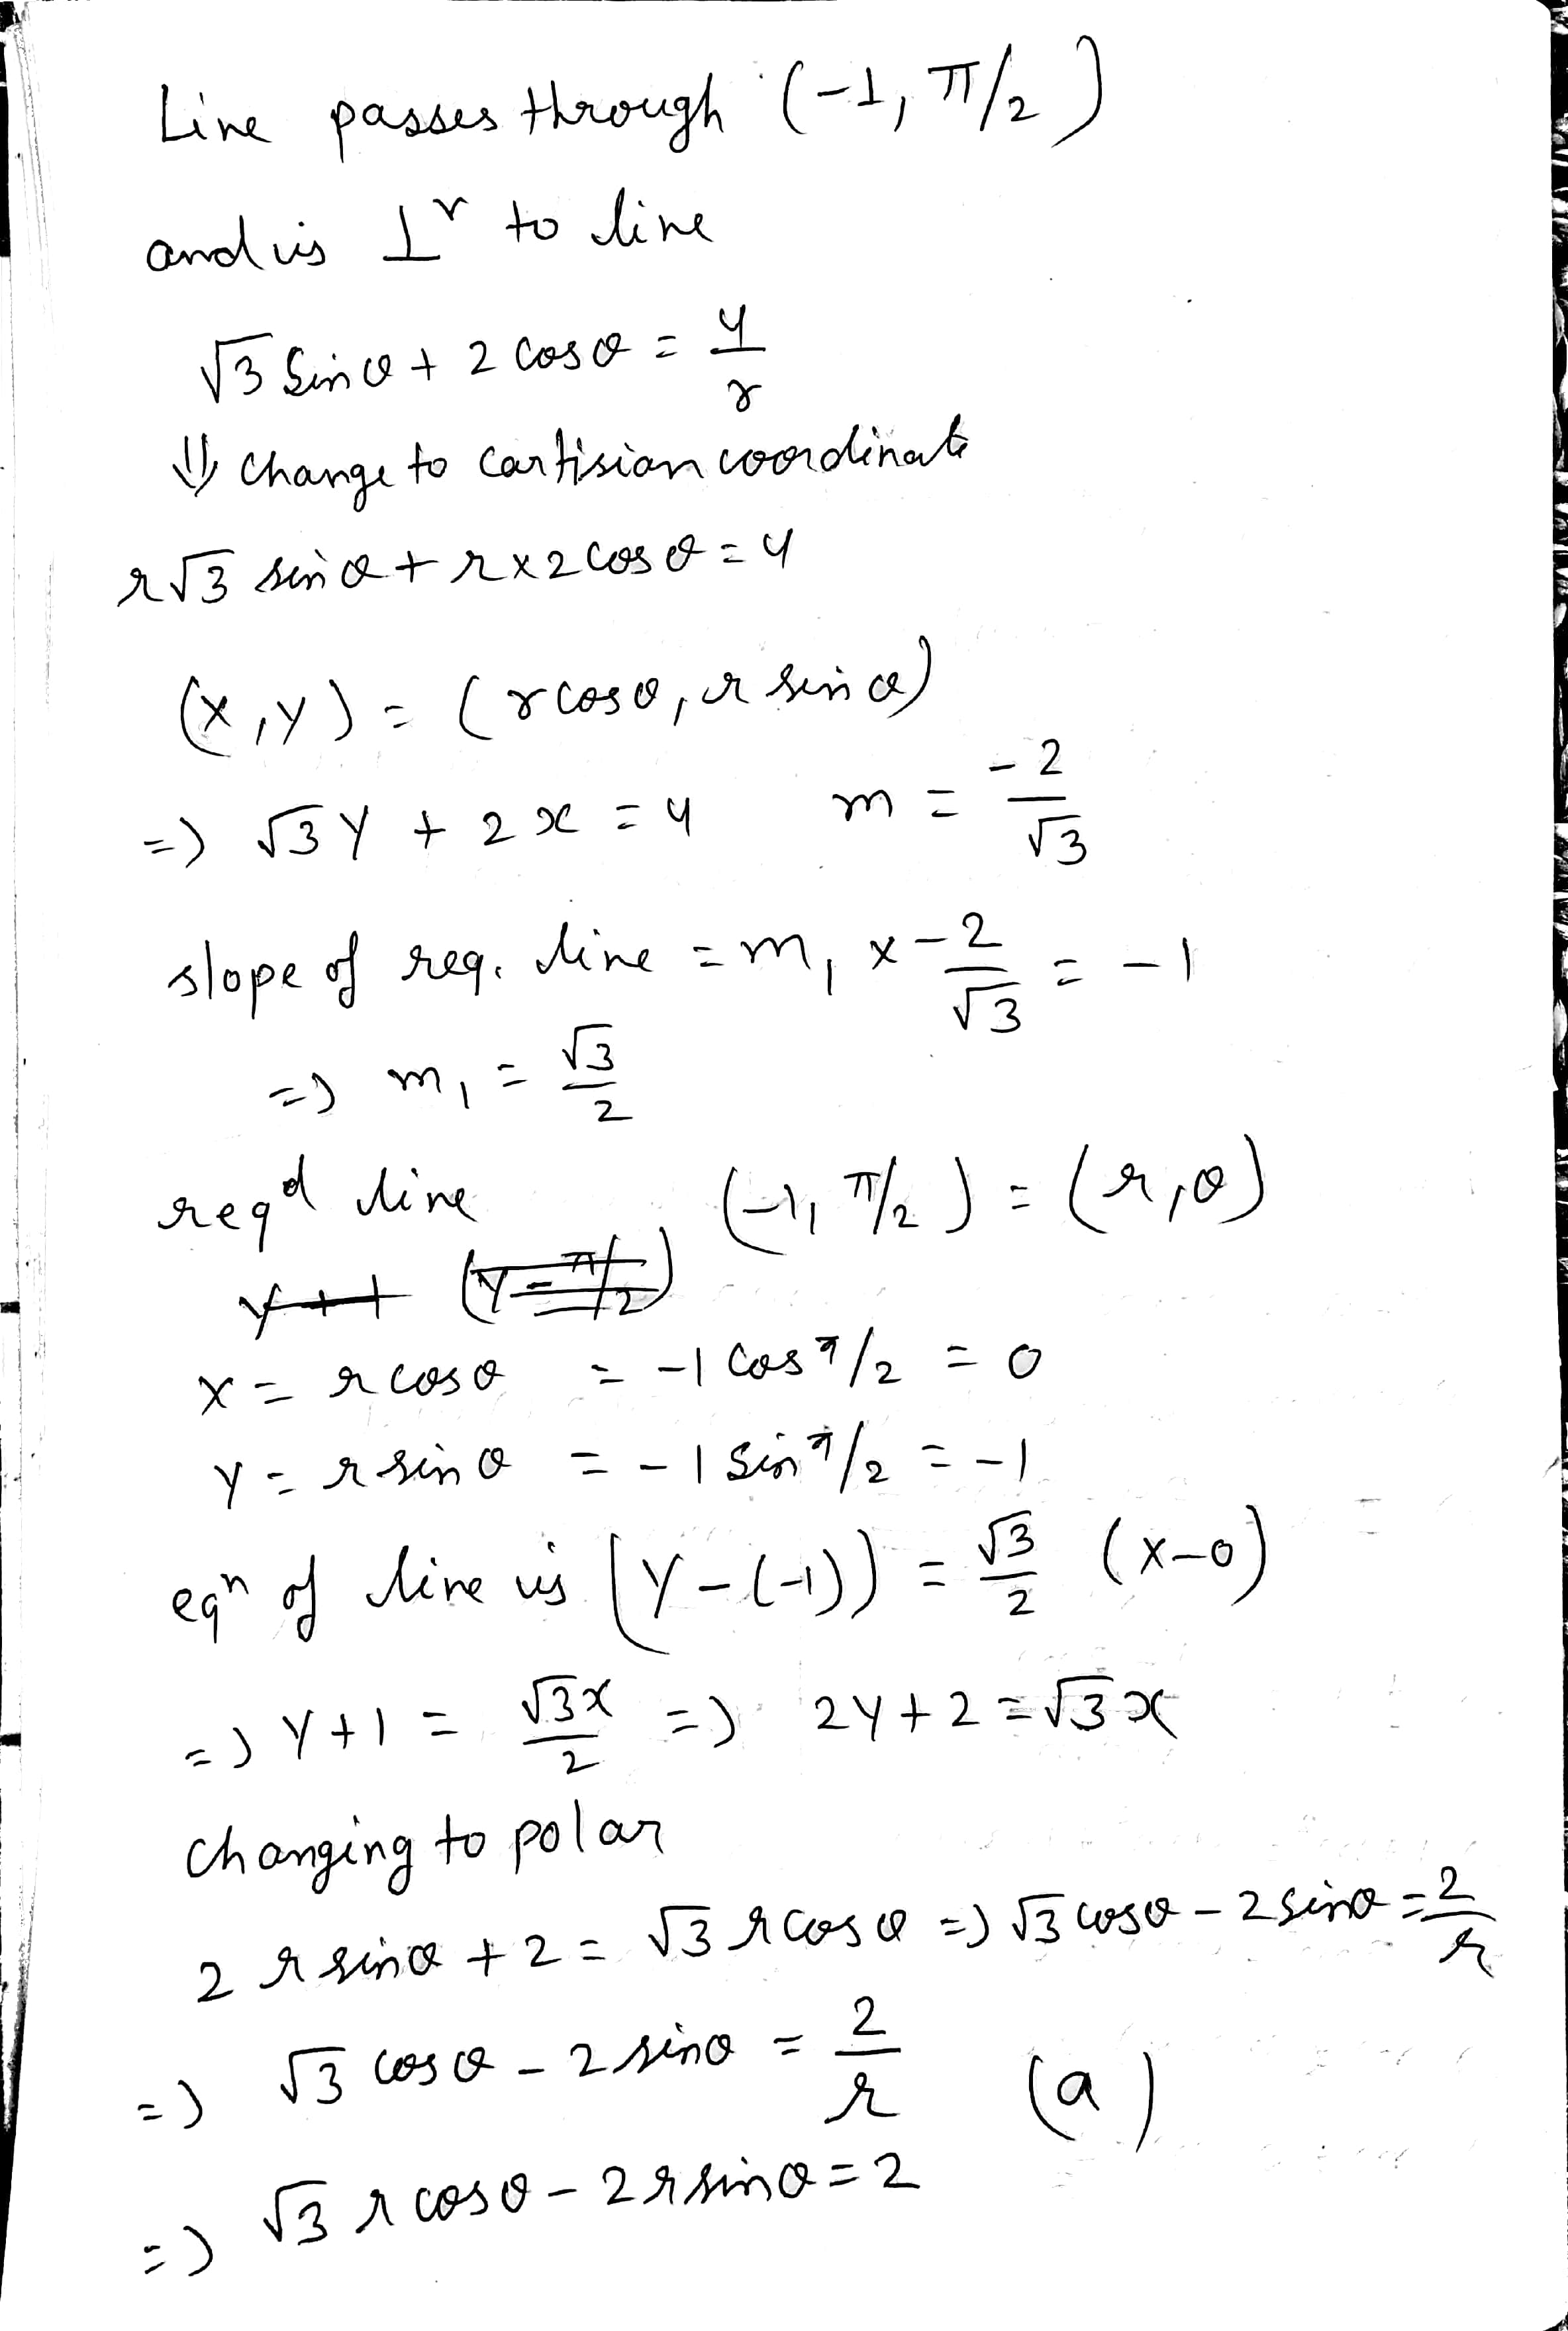 Line passes through (-1, π/2)
and is ⊥r to line
√3 Sinθ + 2 Cosθ = 4/r
⇓ Change to Cartisian coordinate
r√3 sinθ + r×2Cosθ = 4
(x,y) = (rcosθ, r sinθ)
=) √3 y + 2x = 4 m = -2/√3
slope of req. line = m₁ × -2/√3 = -1
=) m₁ = √3/2
reqd line (-1, π/2) = (r,θ)
x = r cosθ = -1 Cos π/2 = 0
y = r sinθ = -1 Sin π/2 = -1
eqn of line is (y-(-1)) = √3/2 (x-0)
=) y+1 = √3x/2 =) 2y+2 = √3x
Changing to polar
2 r sinθ + 2 = √3 r Cosθ =) √3 cosθ - 2 sinθ = 2/r
=) √3 cosθ - 2 sinθ = 2/r (a)
=) √3 r cosθ - 2r sinθ = 2